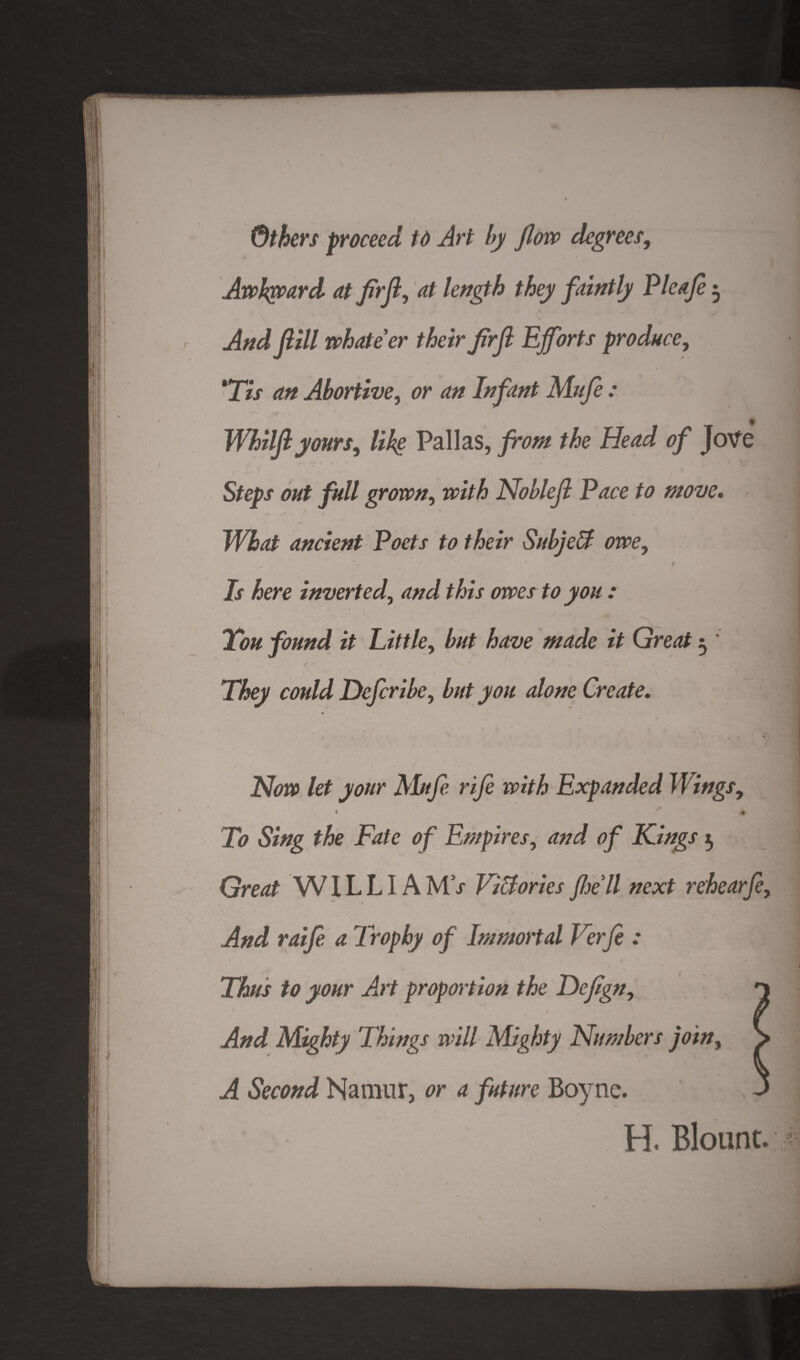 Others proceed to Art by ſlow degrees,
Awkward at firſt, at length they faintly Pleaſe;
And ſtill whate'er their firſt Efforts produce,
'Tis an Abortive, or an Infant Muſe:
Whilſt yours, like Pallas, from the Head of Jove
Steps out full grown, with Nobleſt Pace to move.
What ancient Poets to their Subject owe,
Is here inverted, and this owes to you:
You found it Little, but have made it Great;
They could Deſcribe, but you alone Create.
Now let your Muſe riſe with Expanded Wings,
To Sing the Fate of Empires, and of Kings;
Great WILLIAM's Victories ſhe'll next rehearſe,
And raiſe a Trophy of Immortal Verſe:
Thus to your Art proportion the Deſign,
And Mighty Things will Mighty Numbers join,
A Second Namur, or a future Boyne.
H. Blount.